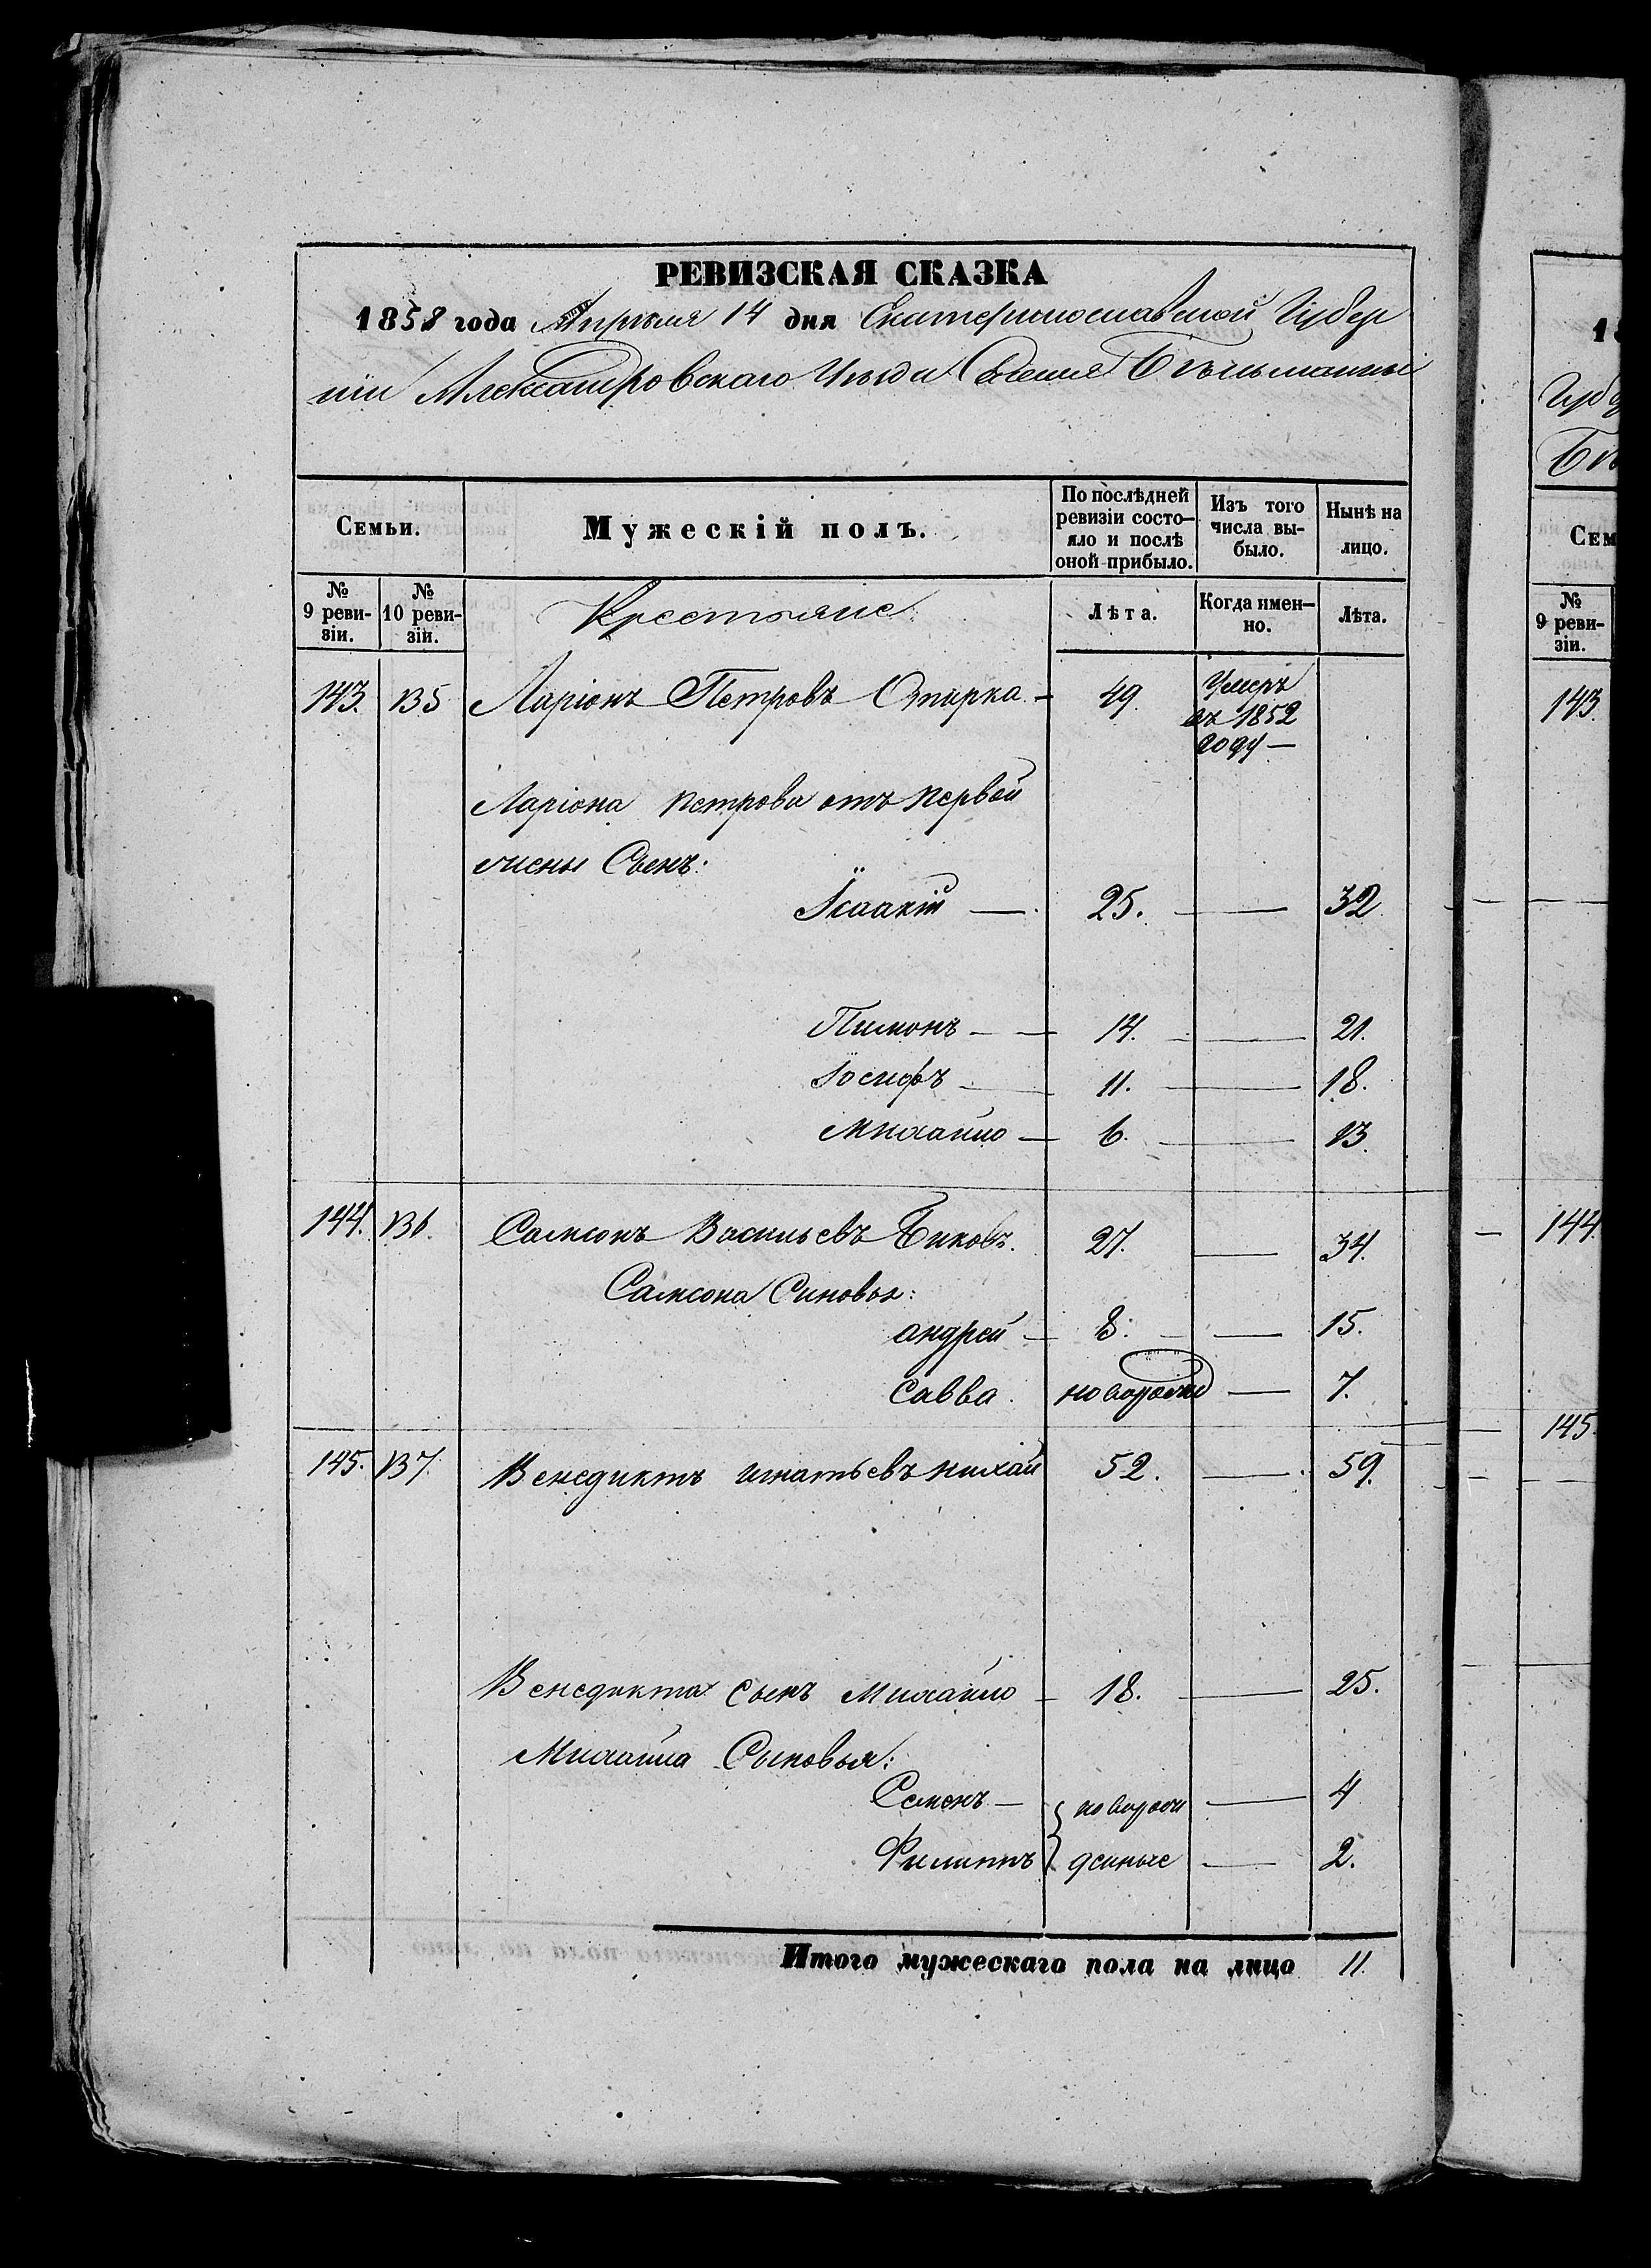 РЕВИЗСКАЯ СКАЗКА
1858 года Апрѣля 14 дня Екатеринославской Губер
ніи Александровскаго Уѣзда Селенія Бѣльманки
Семьи.
Мужескій полъ.
По послѣдней ревизіи состо-
яло и послѣ
оной прибыло.
Изъ того
числа вы-
было.
Нынѣ на
лицо.
№
9 реви-
зіи.
№
10 реви-
зіи.
Крестьяне
Лѣта.
Когда имен-
но.
Лѣта.
143. 135 Ларіонъ Петровъ Опарка - 49. Умеръ
въ 1852
году —
Ларіона Петрова отъ первой
жены Сынъ:
Ісаакій — 25. — 32
Пимонъ — 14. — 21.
Іосифъ — 11. — 18.
Михайло — 6. — 13
144. 136. Самсонъ Васильевъ Биковъ. 27. — 34.
Самсона Синовья:
андрей — 8. — 15.
Савва. новорожд — 7.
145. 137. Венедиктъ игнатьевъ нихай 52. — 59.
Венедикта сынъ Михайло — 18. — 25.
Михайла Сыновья:
Семенъ — новорож — 4
Филиппъ денные — 2.
Итого мужескаго пола на лицо 11.
1
Губ
Бѣ
Сем
№
9 реви-
зіи.
143.
144.
145.